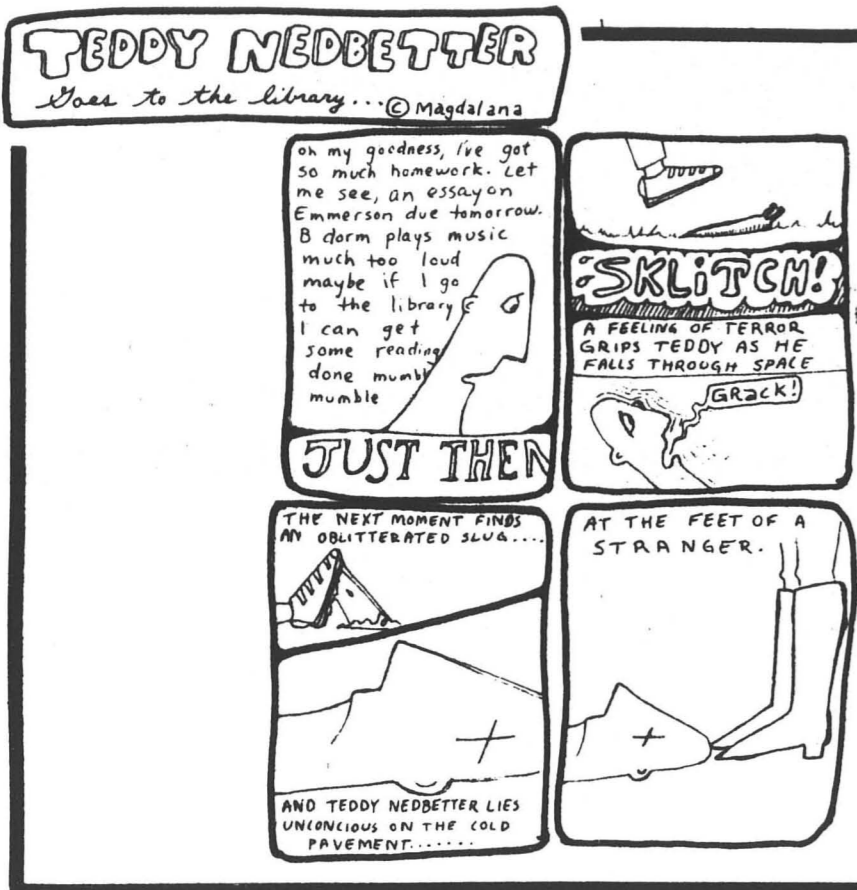 TEDDY NEDBETTER
Goes to the library... © Magdalana
oh my goodness, I've got
so much homework. Let
me see, an essay on
Emmerson due tomorrow.
B dorm plays music
much too loud
maybe if I go
to the library
I can get
some reading
done mumble
mumble
JUST THEN
SKLITCH!
A FEELING OF TERROR
GRIPS TEDDY AS HE
FALLS THROUGH SPACE
GRacK!
THE NEXT MOMENT FINDS
AN OBLITTERATED SLUG....
AND TEDDY NEDBETTER LIES
UNCONCIOUS ON THE COLD
PAVEMENT.......
AT THE FEET OF A
STRANGER.